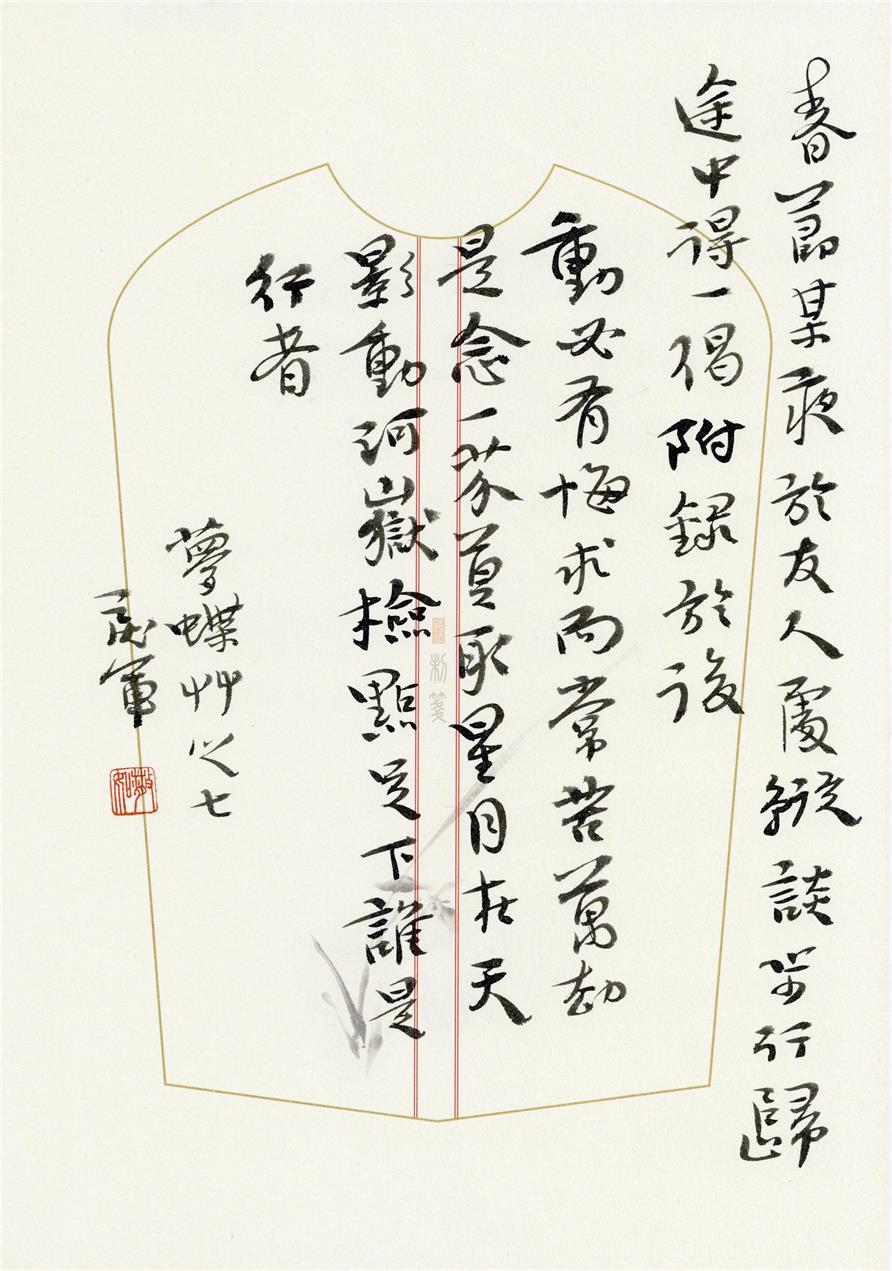 春節某夜於友人處縱談步行歸
途中得一偈附錄於後
動必有悔求而常苦萬劫
是念一芥莫取星月在天
影動河嶽檢點足下誰是
行者
夢蝶艸之七
軍
制箋